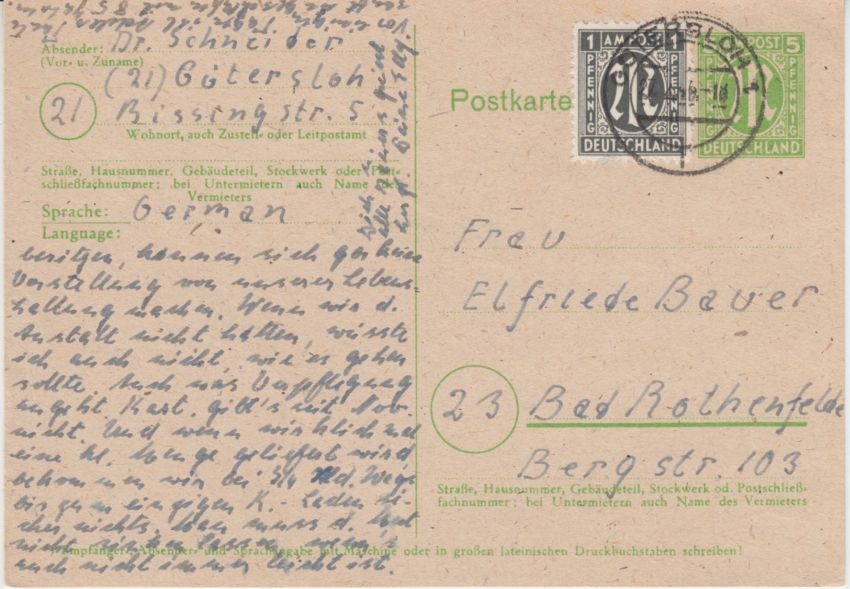 Absender: Dr. Schneider
(Vor- u. Zuname)
(21) Gütersloh
21 Bissingstr. 5
Wohnort, auch Zustell- oder Leitpostamt
Straße, Hausnummer, Gebäudeteil, Stockwerk oder Post-
schließfachnummer; bei Untermietern auch Name des
Vermieters
Sprache: German
Language:
besitzen, können sich gar keine
Vorstellung von unserer Lebens-
haltung machen. Wenn wir d.
Anstalt nicht hätten, wüsste
ich auch nicht, wie es gehen
sollte. Auch was Verpflegung
angeht. Kart. gibt's seit Nov.
nicht. Und wenn wirklich mal
eine kl. Menge geliefert wird
bekommen wir bei 3/4 Std. Wegs
bis zum einzigen K.-Laden si-
cher nichts. Man muss d. Mut
nicht sinken lassen, wenn's
auch nicht immer leicht ist.
Postkarte
1 AM POST 1
PFENNIG PFENNIG
DEUTSCHLAND
POST 5
PFENNIG
DEUTSCHLAND
GÜTERSLOH 1
Frau
Elfriede Bauer
23 Bad Rothenfelde
Bergstr. 103
Straße, Hausnummer, Gebäudeteil, Stockwerk od. Postschließ-
fachnummer; bei Untermietern auch Name des Vermieters
Empfänger-, Absender- und Sprachangabe mit Maschine oder in großen lateinischen Druckbuchstaben schreiben!